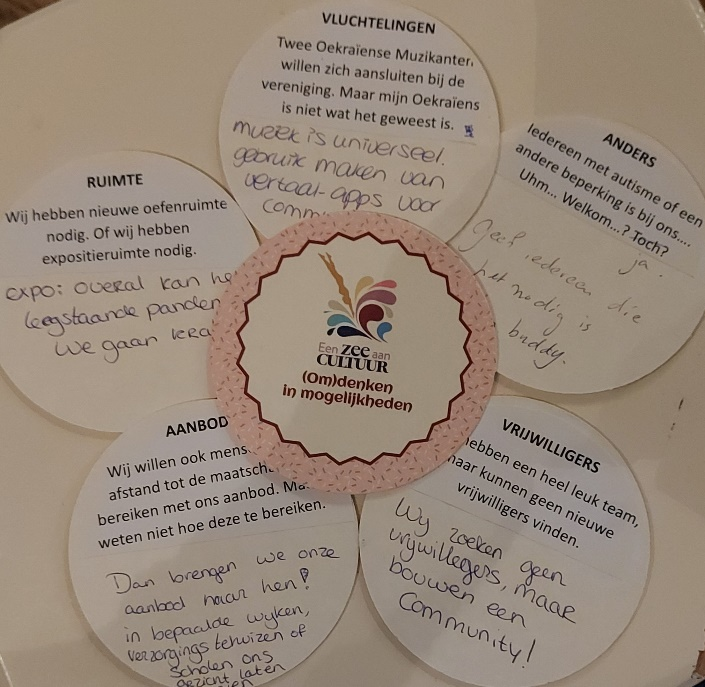 VLUCHTELINGEN
Twee Oekraïense Muzikanten
willen zich aansluiten bij de
vereniging. Maar mijn Oekraïens
is niet wat het geweest is.
muziek is universeel.
gebruik maken van
vertaal-apps voor
comm
ANDERS
Iedereen met autisme of een
andere beperking is bij ons....
Uhm... Welkom...? Toch?
ja.
geef iedereen die
het nodig is
buddy.
RUIMTE
Wij hebben nieuwe oefenruimte
nodig. Of wij hebben
expositieruimte nodig.
expo: overal kan he
leegstaande panden
We gaan
Een zee aan
CULTUUR
(Om)denken
in mogelijkheden
AANBOD
Wij willen ook mens
afstand tot de maatsch
bereiken met ons aanbod. Ma
weten niet hoe deze te bereiken.
Dan brengen we onze
aanbod naar hen!
in bepaalde wijken,
verzorgingstehuizen of
scholen ons
gezicht laten
zien
VRIJWILLIGERS
hebben een heel leuk team,
maar kunnen geen nieuwe
vrijwilligers vinden.
Wij zoeken geen
vrijwilligers, maar
bouwen een
Community!